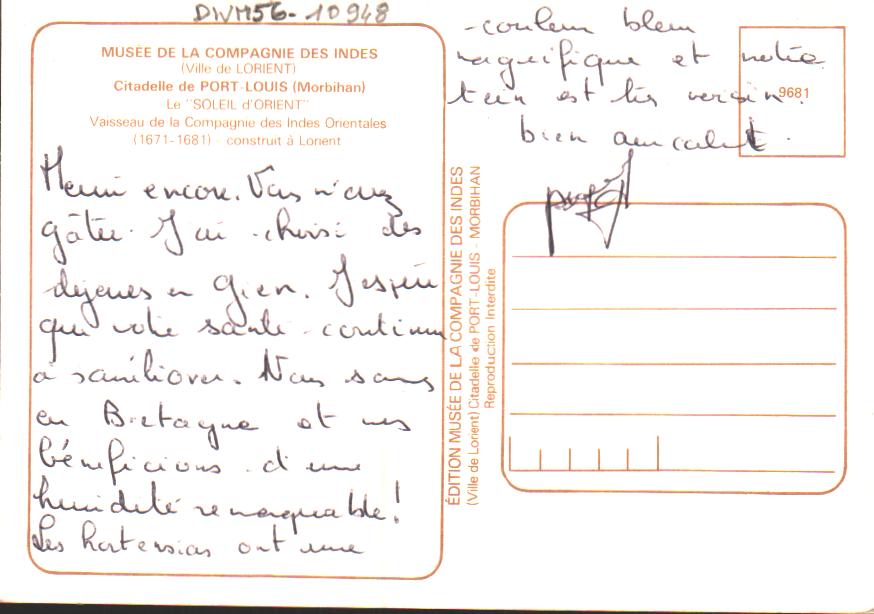 DWM56-10948
MUSÉE DE LA COMPAGNIE DES INDES
(Ville de LORIENT)
Citadelle de PORT-LOUIS (Morbihan)
Le "SOLEIL d'ORIENT"
Vaisseau de la Compagnie des Indes Orientales
(1671-1681) - construit à Lorient
Merci encore. Vous m'avez
gâtée. J'ai choisi des
déjeuners en Gien. J'espère
que votre santé continue
à s'améliorer. Nous sommes
en Bretagne et nous
bénéficions d'une
humidité remarquable!
Les hortensias ont une
couleur bleue
magnifique et notre
teint est très
bien amicalement.
9681
ÉDITION MUSÉE DE LA COMPAGNIE DES INDES
(Ville de Lorient) Citadelle de PORT-LOUIS - MORBIHAN
Reproduction Interdite